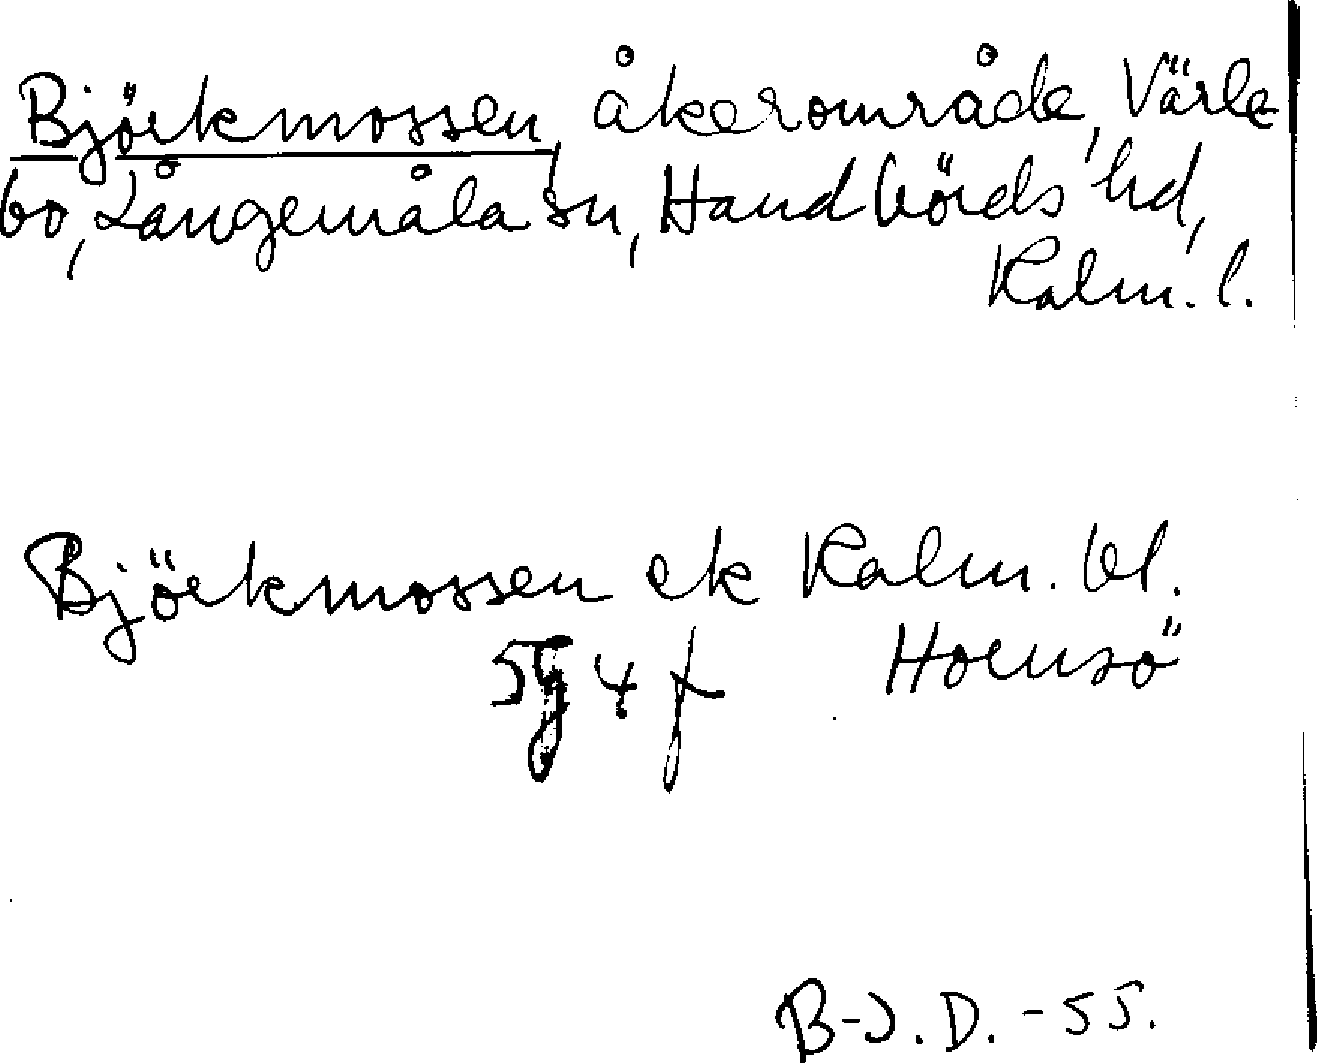 Björkmossen, åkerområde, Värle
bo, Långemåla sn, Handbörds hd,
Kalm. l.
Björkmossen ek Kalm. bl.
5g 4 f Hornsö
B-J. D. -55.